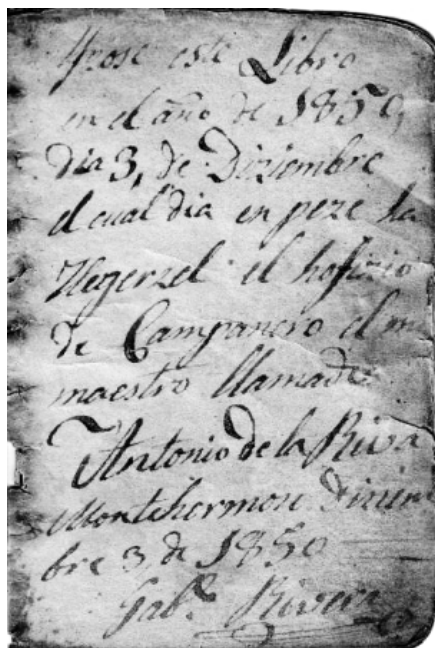 este Libro
en el año de 1850,
Dia 3, de Diziembre
el cual dia en peze ha
Hegerzel el hofizio
de Campanero el m
maestro llamado
Antonio de la Riva
Montehermoso Dizien
bre 3 de 1850
Gab.l Rivera